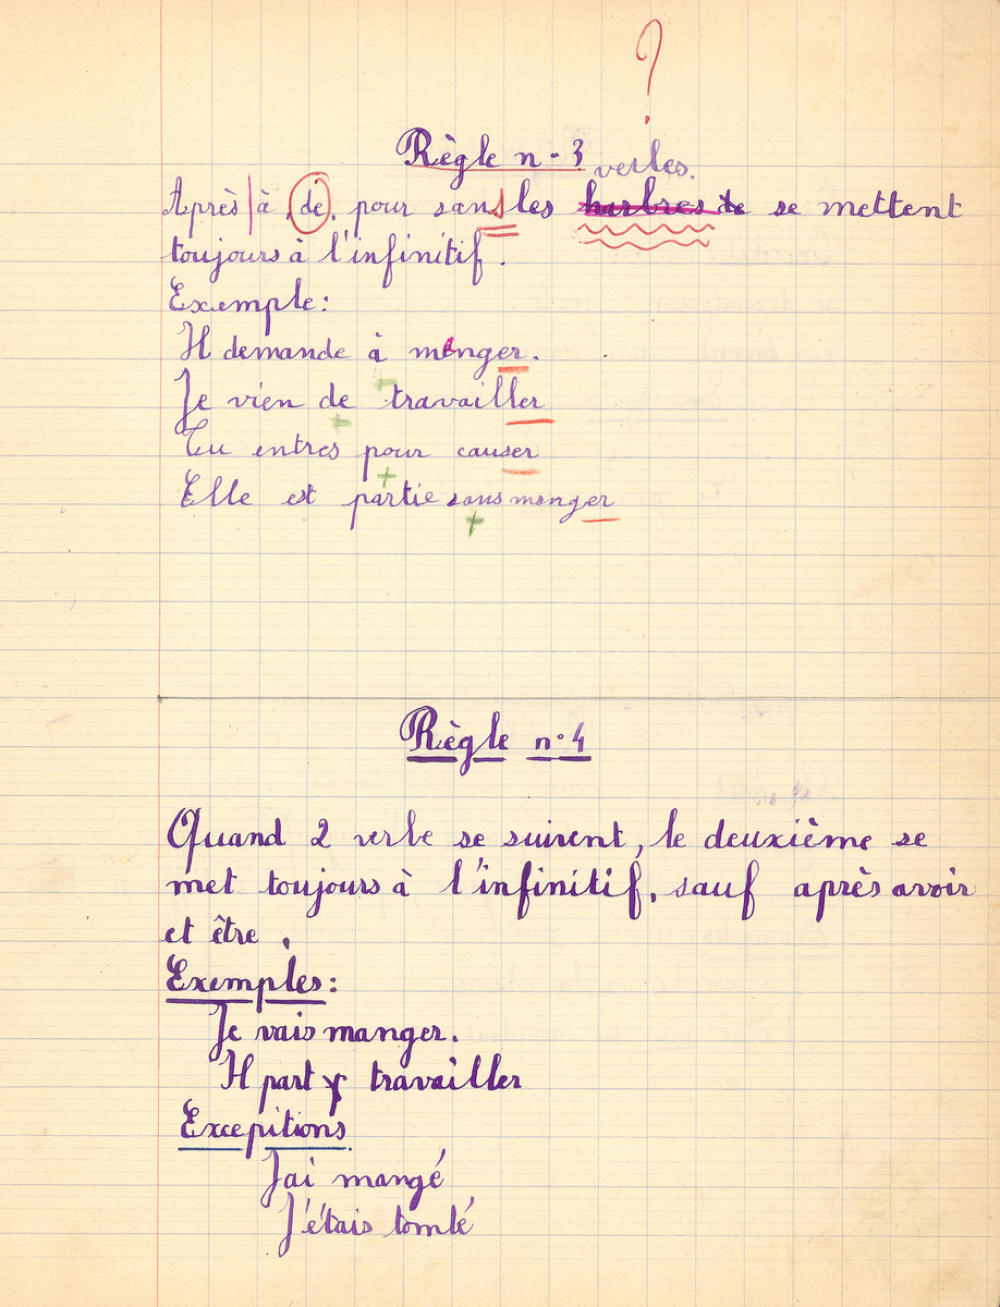 ?
Règle n-3
verbes.
Après à, de, pour sans les harbres de se mettent
toujours à l'infinitif.
Exemple:
Il demande à manger.
Je vien de travailler
Tu entres pour causer
Elle est partie sans manger
Règle n°4
Quand 2 verbe se suivent, le deuxième se
met toujours à l'infinitif, sauf après avoir
et être.
Exemples:
Je vais manger.
Il part y travailler
Excepitions
J'ai mangé
J'étais tombé